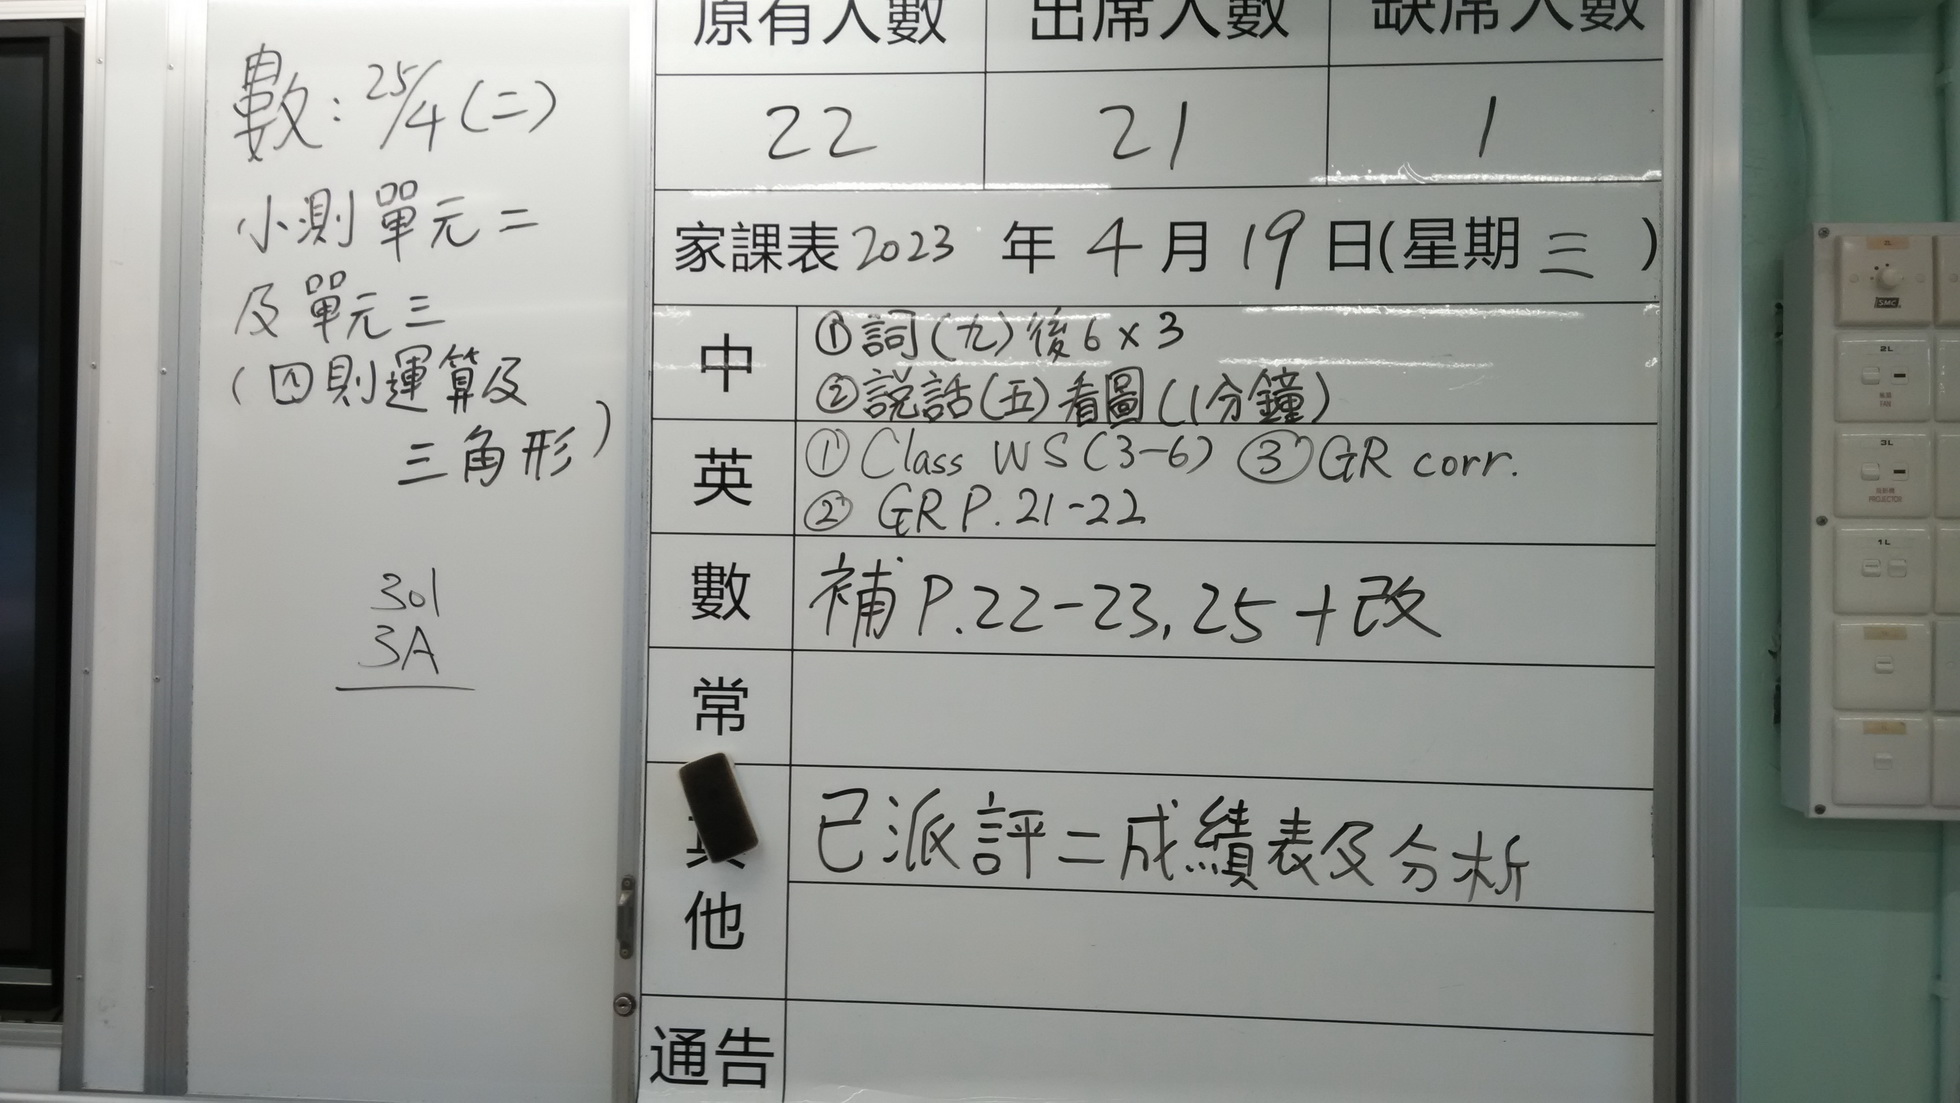 數: 25/4(二)
小測單元二
及單元三
(四則運算及
三角形)
301
3A
原有人數 出席人數 缺席人數
22 21 1
家課表2023年4月19日(星期三)
中
①詞(九)後6×3
②說話(五)看圖(1分鐘)
英
① Class WS(3-6) ③GR corr.
② GR P.21-22
數
補P.22-23,25+改
常
其他
已派評二成績表及分析
通告
SMC
2L
3L
PROJECTOR
1L